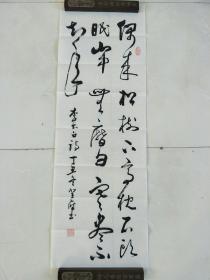 偶来松树下高枕石头
眠山中無曆日寒尽不
知年
李太白诗丁丑
书